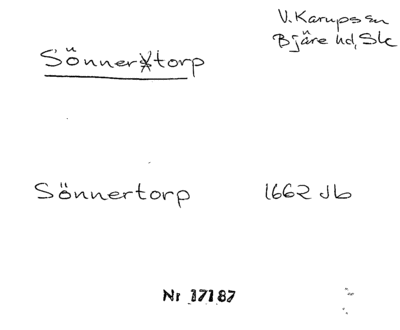 V. Karups sn
Bjäre hd, Sk
Sönnertorp
Sönnertorp 1662 Jb
Nr 17187